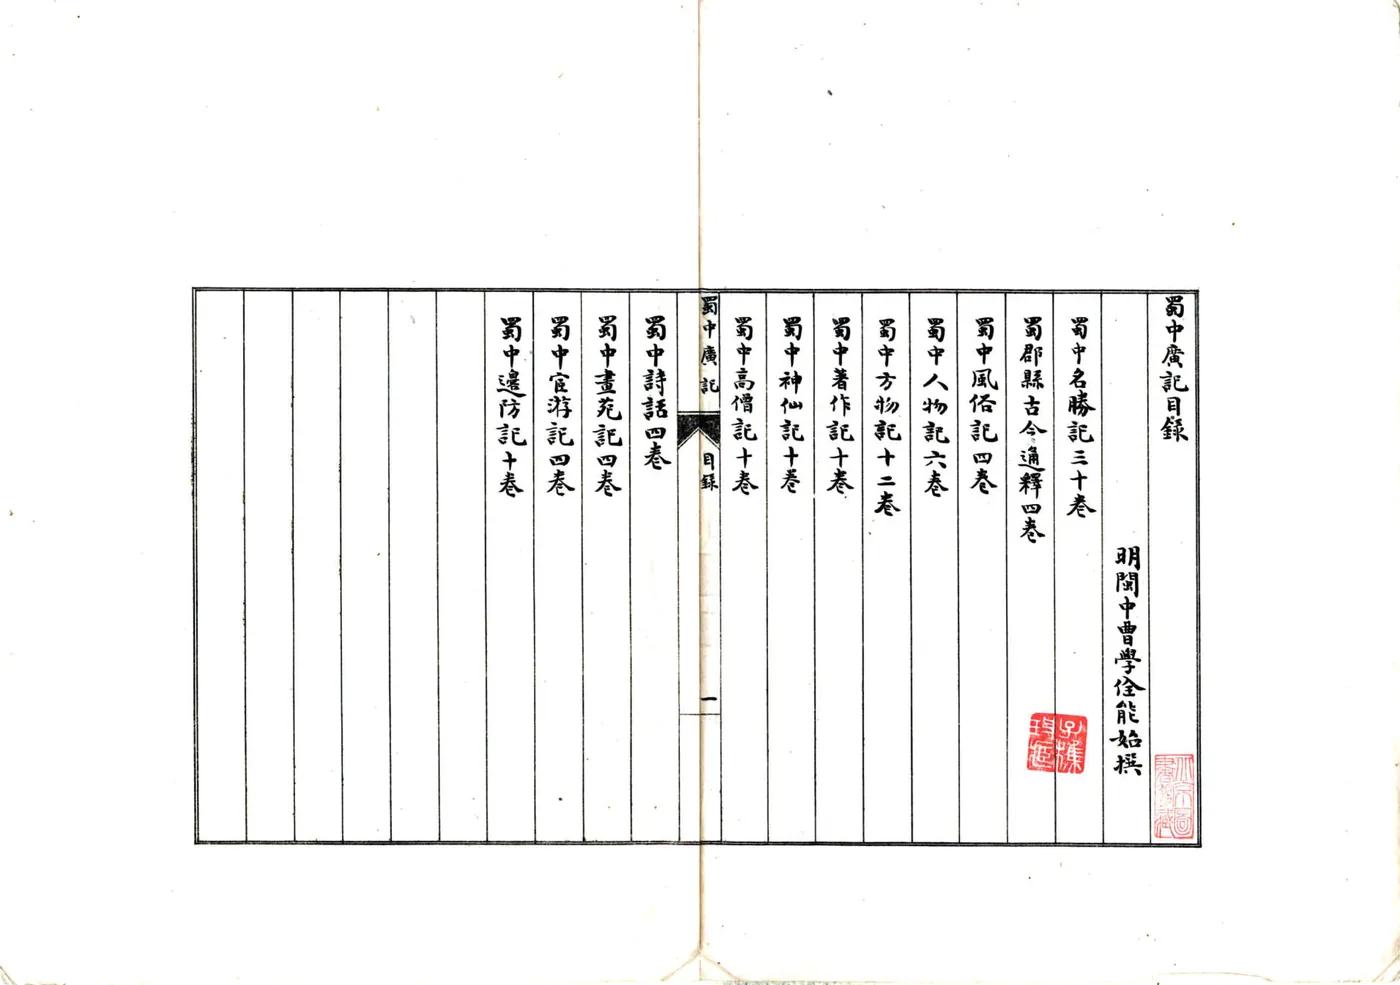 蜀中廣記目録
明閩中曹學佺能始撰
蜀中名勝記三十卷
蜀郡縣古今通釋四卷
蜀中風俗記四卷
蜀中人物記六卷
蜀中方物記十二卷
蜀中著作記十卷
蜀中神仙記十卷
蜀中高僧記十卷
蜀中廣記 目録 一
蜀中詩話四卷
蜀中畫苑記四卷
蜀中宦游記四卷
蜀中邊防記十卷